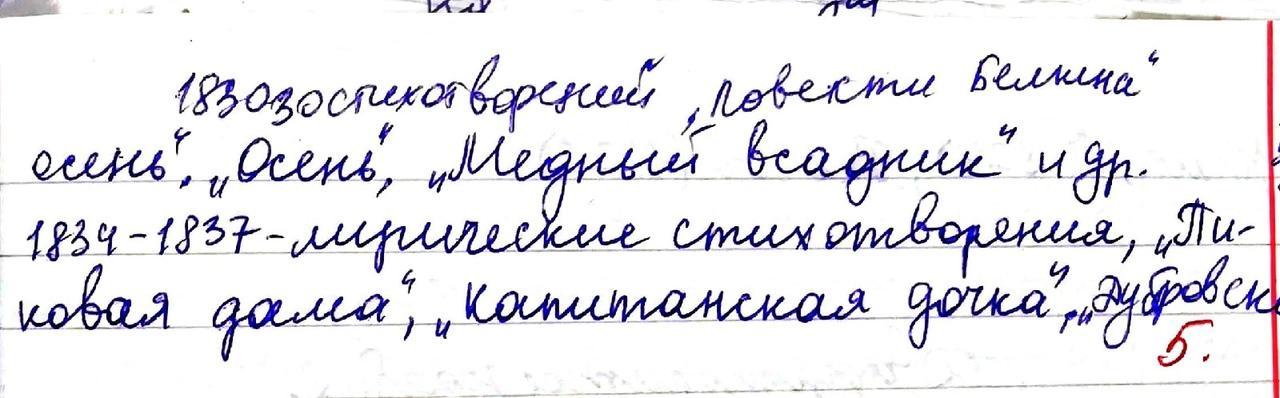 1830 30 стихотворений, „Повести Белкина“
осень“, „Осень“, „Медный всадник“ и др.
1834-1837-лирические стихотворения, „Пи-
ковая дама“, „Капитанская дочка“, „Дубровск
5.